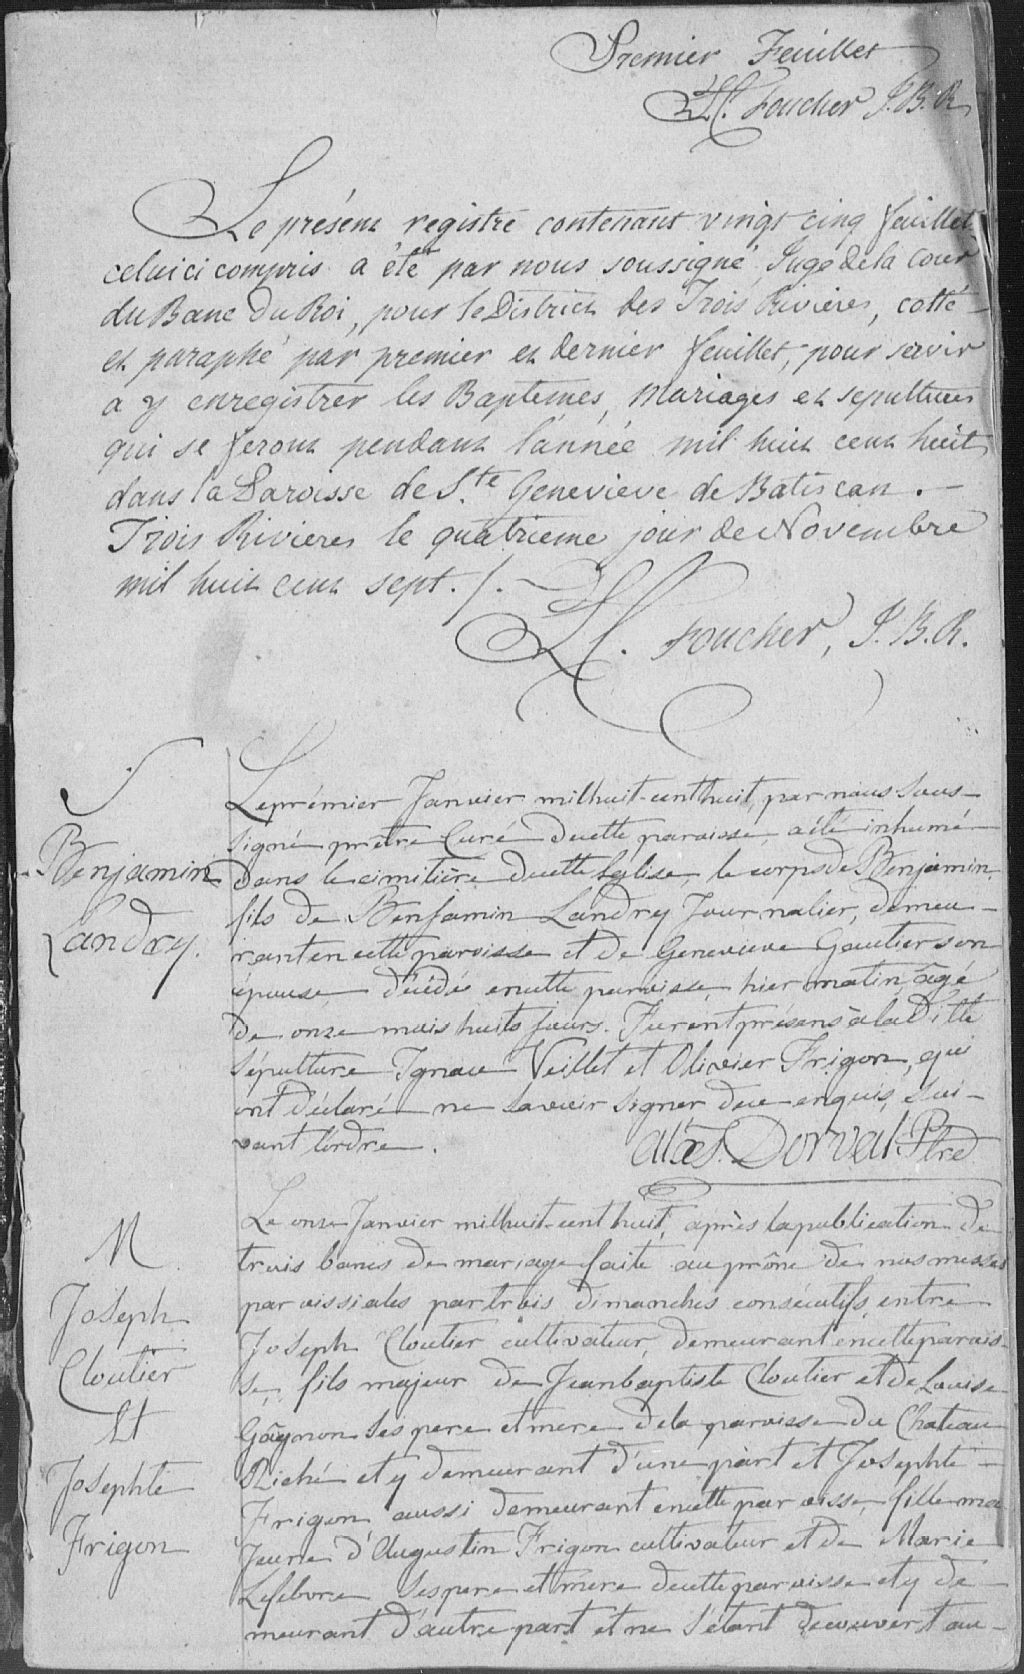 Premier Feuillet
L.C. Foucher J.B.R.
Le présent registre contenant vingt cinq feuillets
celuici compris a été par nous soussigné Juge de la Cour
du Banc du Roi, pour le District des Trois Rivieres, cotté
et paraphé par premier et dernier feuillet, pour servir
a y enregistrer les Baptemes, Mariages et sepultures
qui se feront pendant l'année mil huit cent huit
dans la Paroisse de Ste Genevieve de Batiscan. –
Trois Rivieres le quatrieme jour de Novembre
mil huit cent sept. /. –
L.C. Foucher, J.B.R.
S
Benjamin
Landry.
Le prémier Janvier mil huit-cent huit, par nous sous-
signé prêtre Curé de cette paroisse, a été inhumé
dans le cimitière de cette Eglise, le corps de Benjamin,
fils de Benjamin Landry Journalier, demeu-
rant en cette paroisse et de Genevieve Gautier son
épouse, décédé en cette paroisse hier matin, âgé
de onze mois huits jours. Furent présens à la ditte
Sépulture Ignace Veillet et Olivier Frigon, qui
ont déclaré ne savoir signer de ce enquis, sui-
vant l'ordre.
Alexs. Dorval Ptre
M
Joseph
Cloutier
Et
Josephte
Frigon
Le onze Janvier mil huit-cent huit, après la publication de
trois bancs de mariage faite au prône de nos messes
paroissiales par trois dimanches consécutifs, entre
Joseph Cloutier cultivateur, demeurant en cette parois-
se, fils majeur de Jean baptiste Cloutier et de Louise
Gâgnon ses pere et mere de la paroisse du Chateau
Riché et y demeurant d'une part et Josephte –
Frigon aussi demeurant en cette paroisse, fille ma
jeure d'Augustin Frigon cultivateur et de Marie
Lefebvre ses pere et mère de cette paroisse et y de-
meurant d'autre part et ne s'étant decouvert au-